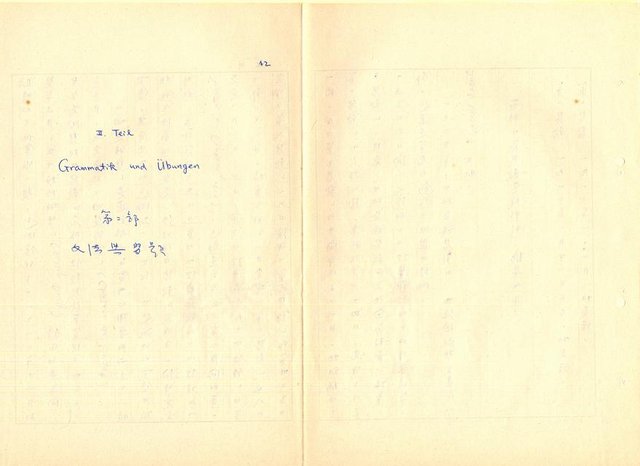 12
II. Teil
Grammatik und Übungen
第二部
文法與習題